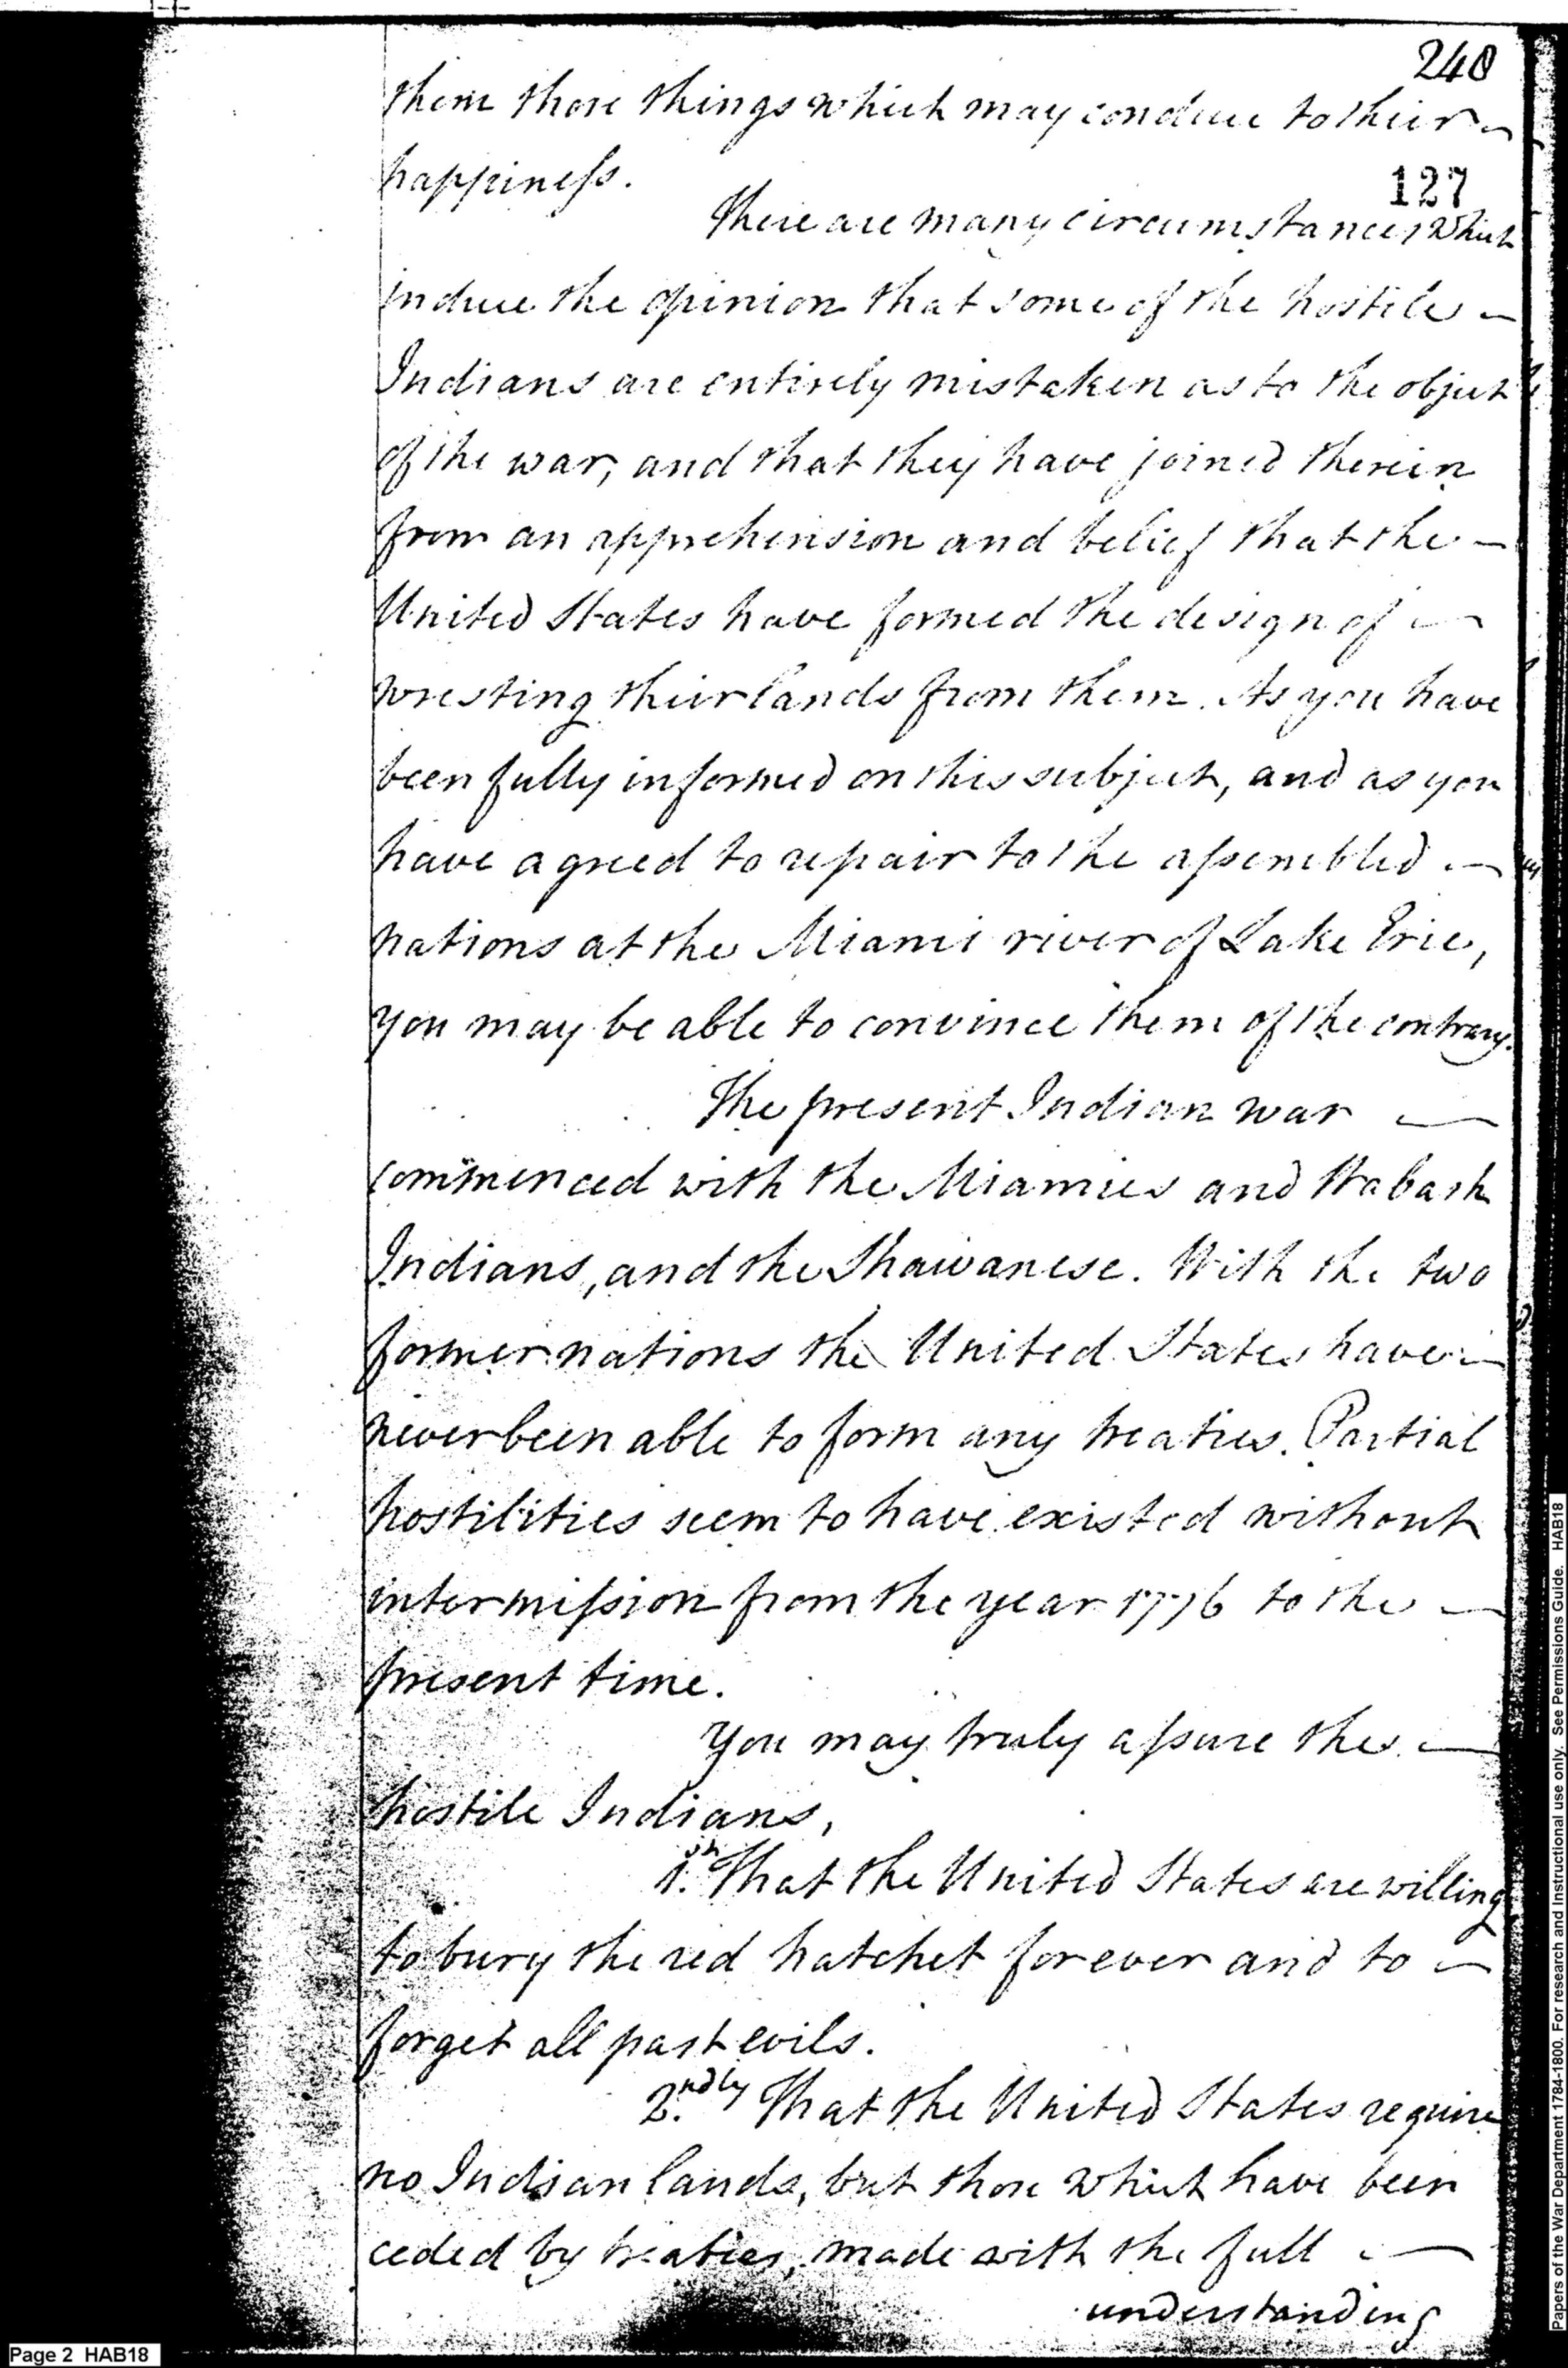 240
them those things which may conduce to their
happiness.
127
There are many circumstances which
induce the opinion that some of the hostile
Indians are entirely mistaken as to the object
of the war, and that they have joined therein
from an apprehension and belief that the
United States have formed the design of
wresting their lands from them. As you have
been fully informed on this subject, and as you
have agreed to repair to the assembled
nations at the Miami river of Lake Erie,
you may be able to convince them of the contrary.
The present Indian war
commenced with the Miamies and Wabash
Indians, and the Shawanese. With the two
former nations the United States have
never been able to form any treaties. Partial
hostilities seem to have existed without
intermission from the year 1776 to the
present time.
You may truly assure the
hostile Indians,
1.st That the United States are willing
to bury the red hatchet forever and to
forget all past evils.
2.ndly That the United States require
no Indian lands, but those which have been
ceded by treaties, made with the full
understanding
Page 2 HAB18
Papers of the War Department 1784-1800. For research and Instructional use only. See Permissions Guide. HAB18